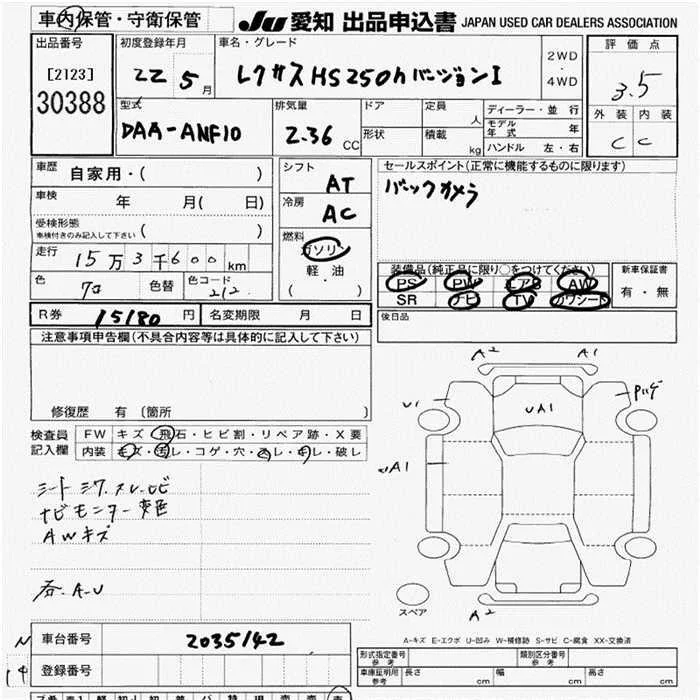 車内保管・守衛保管
JU 愛知 出品申込書 JAPAN USED CAR DEALERS ASSOCIATION
出品番号
[2123]
30388
初度登録年月
22 5月
車名・グレード
レクサスHS250hバージョンI
2WD
・
4WD
評価点
3.5
外装 内装
C C
型式
DAA-ANF10
排気量
2.36 CC
ドア
形状
定員 人
積載 kg
ディーラー・並行
モデル年式 年
ハンドル 左・右
車歴 自家用・( )
車検 年 月( 日)
受検形態
車検付きのみ記入して下さい ( )
走行 15万3千600km
色 クロ 色替 色コード 212
シフト AT
冷房 AC
燃料
ガソリン
軽・油
( ・ )
セールスポイント(正常に機能するものに限ります)
バックカメラ
装備品(純正品に限り○をつけてください)
PS PW エアB AW
SR ナビ TV カワシート
新車保証書
有・無
後日品
R券 15180円 名変期限 月 日
注意事項申告欄(不具合内容等は具体的に記入して下さい)
修復歴 有 〔箇所 〕
検査員
記入欄
FW キズ・飛石・ヒビ割・リペア跡・X要
内装 キズ・汚レ・コゲ・穴・スレ・キレ・破レ
シートシワ.スレ.
ナビモニター変色
AWキズ
各.A-U
A2 A1
U1 UA1
A1
A2
スペア
A-キズ E-エクボ U-凹み W-補修跡 S-サビ C-腐食 XX-交換済
車台番号 2035142
登録番号
形式指定番号
参考
類別区分番号
参考
車庫証明用
参考
長さ cm 幅 cm 高さ cm